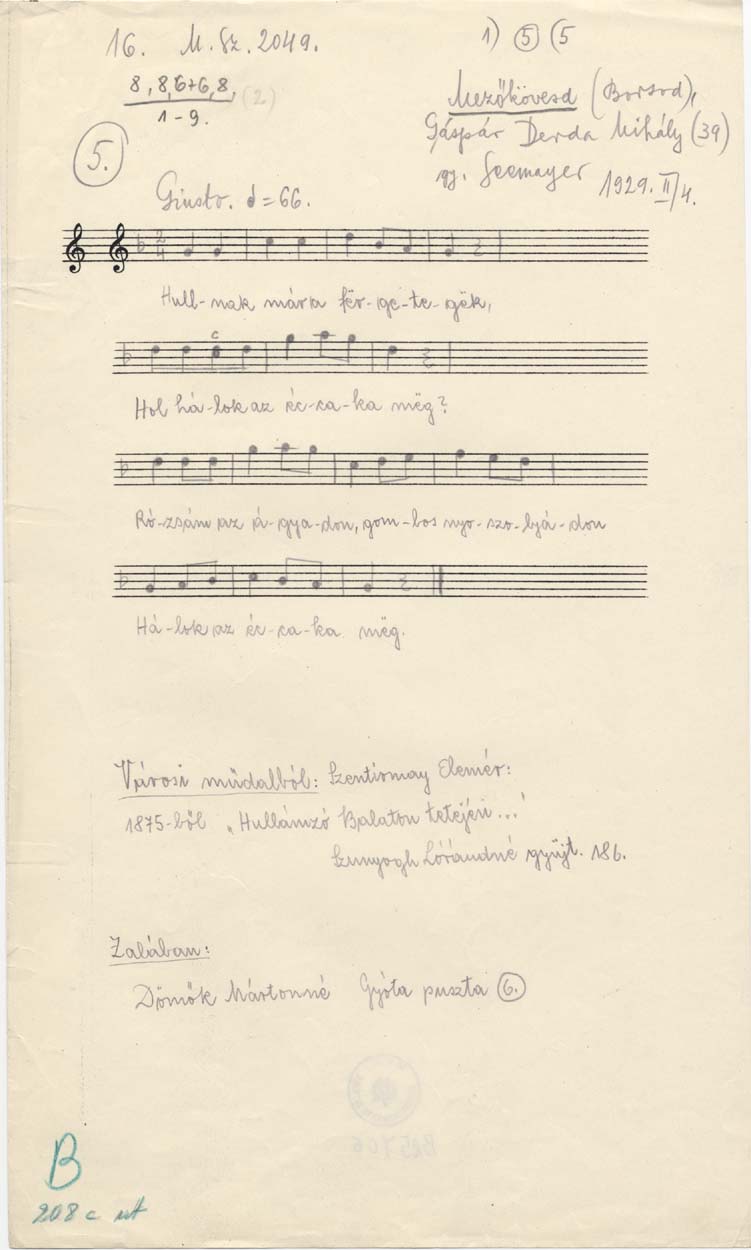 16. M. Sz. 2049.
1) 5 (5
8, 8, 6+6, 8, (2)
1 - 9.
5.
Mezőkövesd (Borsod),
Gáspár Derda Mihály (39)
gy. Seemayer 1929. II/4.
Giusto. = 66.
2
4
Hull-nak mára fër-ge-te-gëk,
c
Hol há-lok az éc-ca-ka mëg?
Ró-zsám az á-gya-don, gom-bos nyo-szo-lyá-don
Há-lok az éc-ca-ka mëg.
Városi műdalból: Szentirmay Elemér:
1875-ből „Hullámzó Balaton tetején..."
Szunyogh Lórándné gyűjt. 186.
Zalában:
Dömők Mártonné Gyóta puszta 6.
B25706
B
208 c